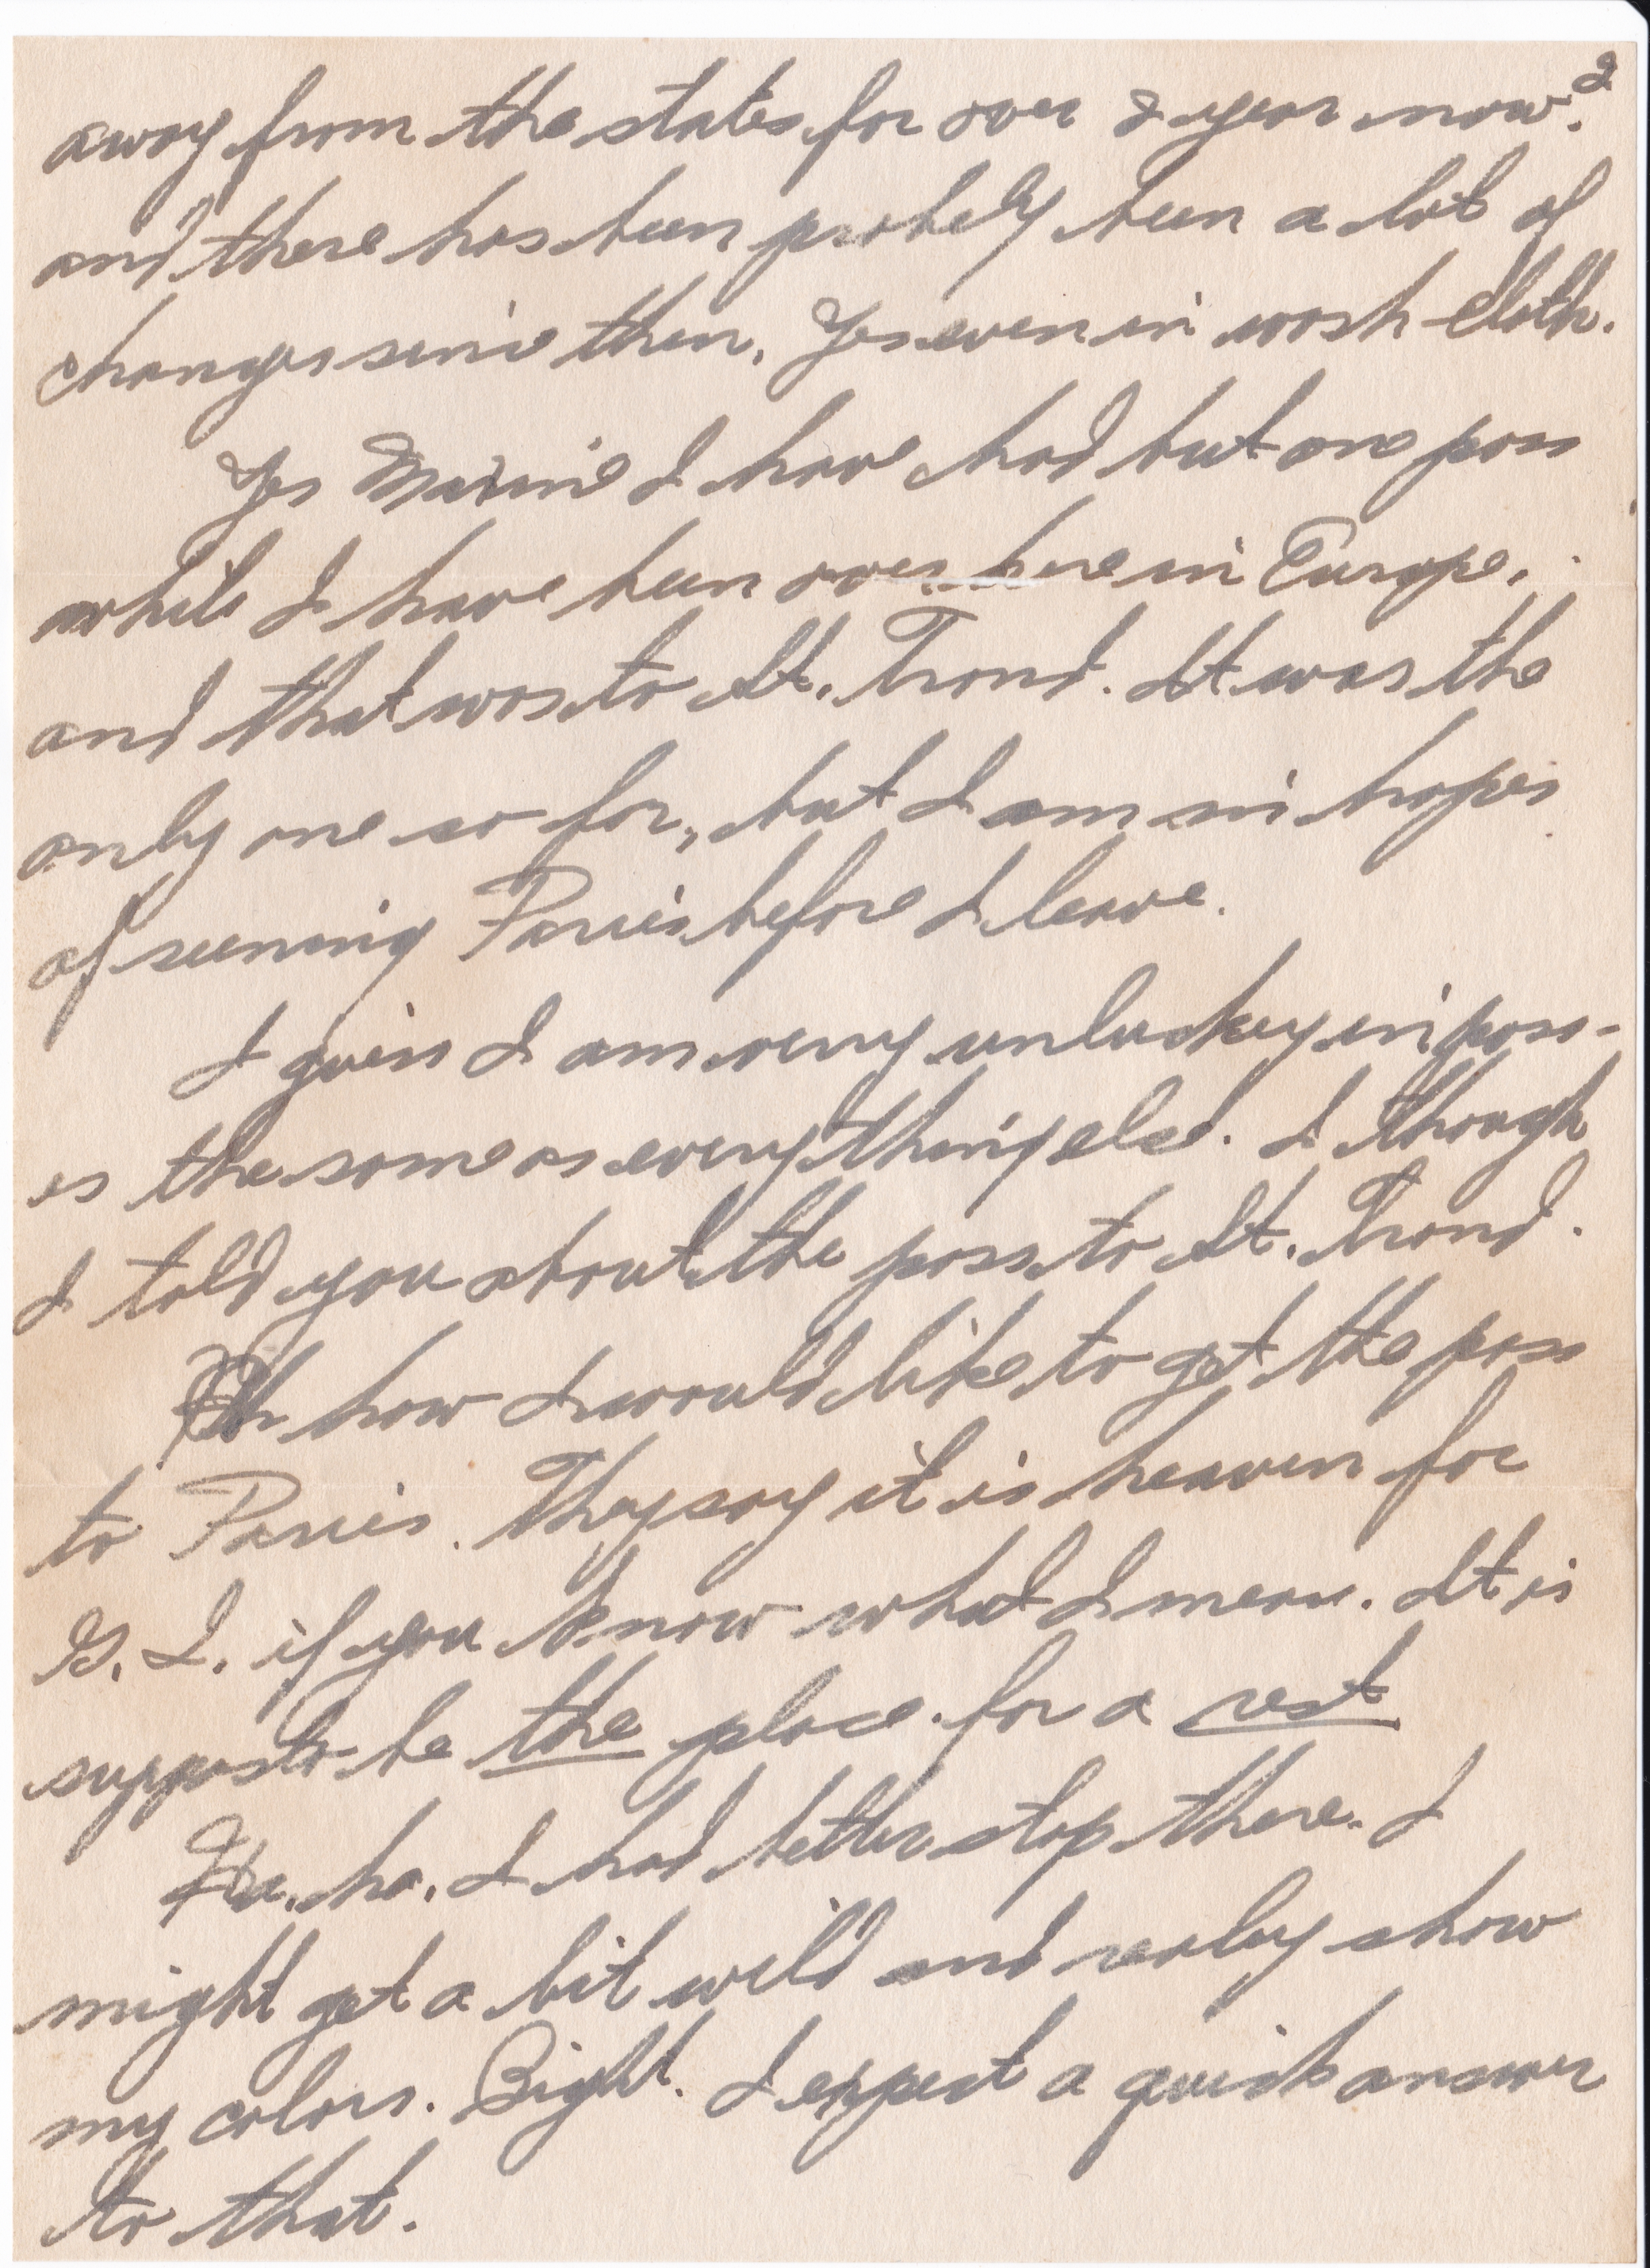 2
away from the states for over a year now.
and there has been probely been a lot of
changes since then. Yes even in wash cloth.
Yes Maxine I have had but one pass
while I have been over here in Europe.
and that was to St. Trond. It was the
only one so far, but I am in hopes
of seening Paris before I leave.
I guess I am very unluckey in pass-
es the same as everything else. I though
I told you about the pass to St. Trond.
Oh how I would like to get the pass
to Paris. They say it is heaven for
G. I. if you know what I mean. It is
suppost to be the place for a rest
Ha. ha. I had better stop there. I
might get a bit wild and realy show
my colors. Right. I expect a quick answer
to that.